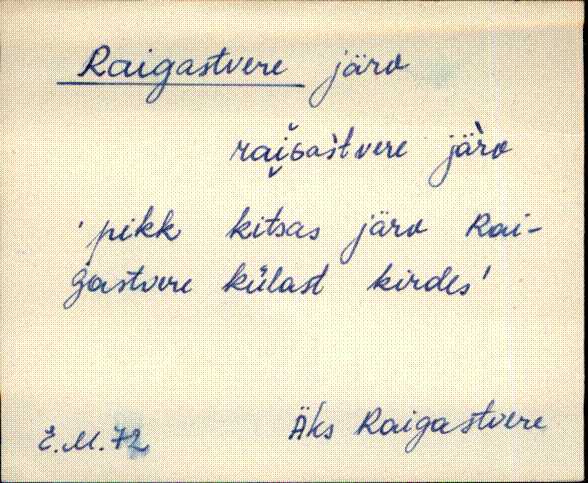 Raigastvere järv
rai̬ɢàstvere jä̀rv
'pikk kitsas järv Rai-
gastvere külast kirdes'
E.M.72 Äks Raigastvere